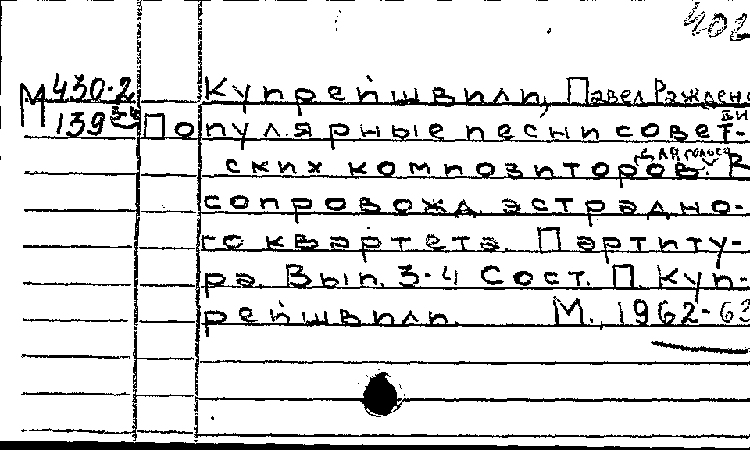 402
М 430-2 Купрейшвили, Павел Ражден
139 Популярные песни совет-
ских композиторов. В
сопровожд. эстрадно-
го квартета. Партиту-
ра. Вып. 3-4 Сост. П. Куп-
рейшвили. М., 1962-63